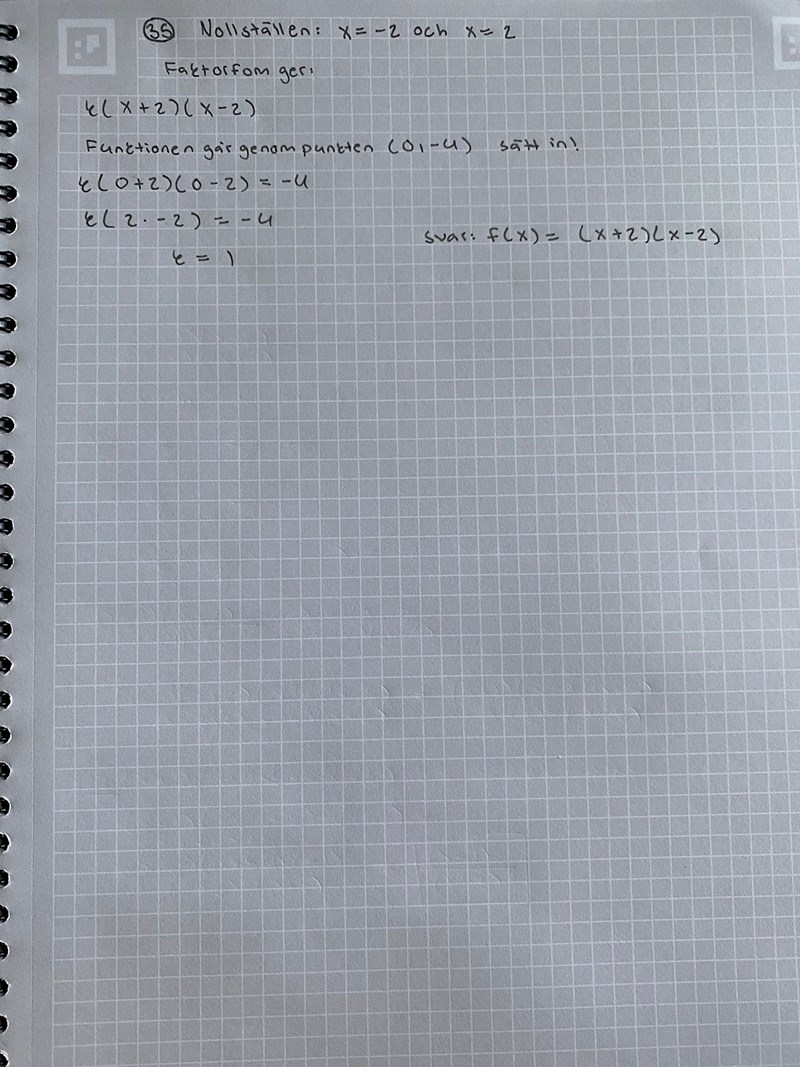 35 Nollställen: x = -2 och x = 2
Faktorfom ger:
k(x+2)(x-2)
Funktionen går genom punkten (0,-4) sätt in!
k(0+2)(0-2) = -4
k(2·-2) = -4
k = 1
svar: f(x) = (x+2)(x-2)